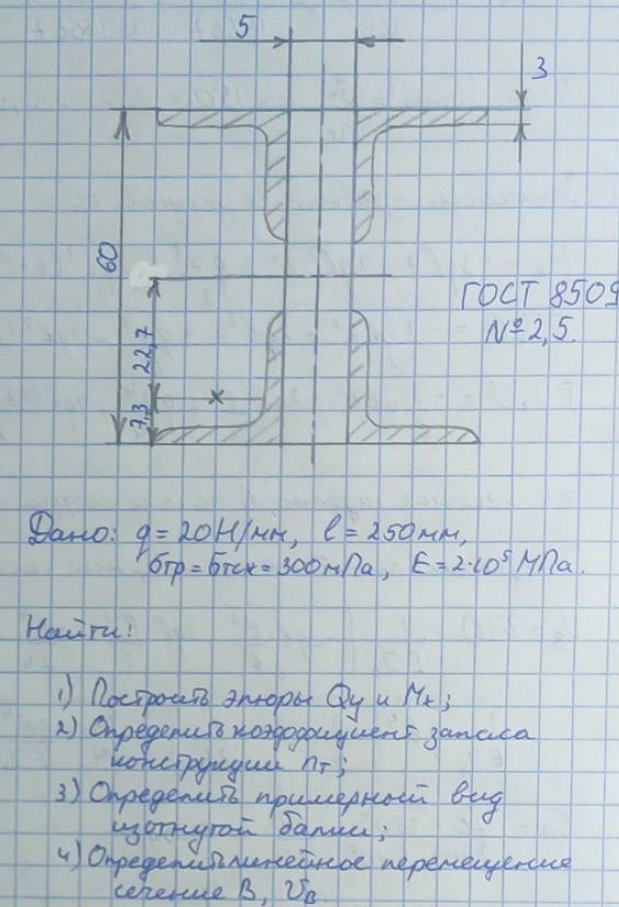 5
3
60
22,7
7,3
ГОСТ 8509
№2,5.
Дано: q = 20 Н/мм, l = 250 мм,
σтр = σтсж = 300 мПа, E = 2·10⁵ МПа.
Найти:
1) Построить эпюры Qy и Mx;
2) Определить коэффициент запаса
конструкции nт;
3) Определить примерный вид
изогнутой балки;
4) Определить линейное перемещение
сечение B, VB